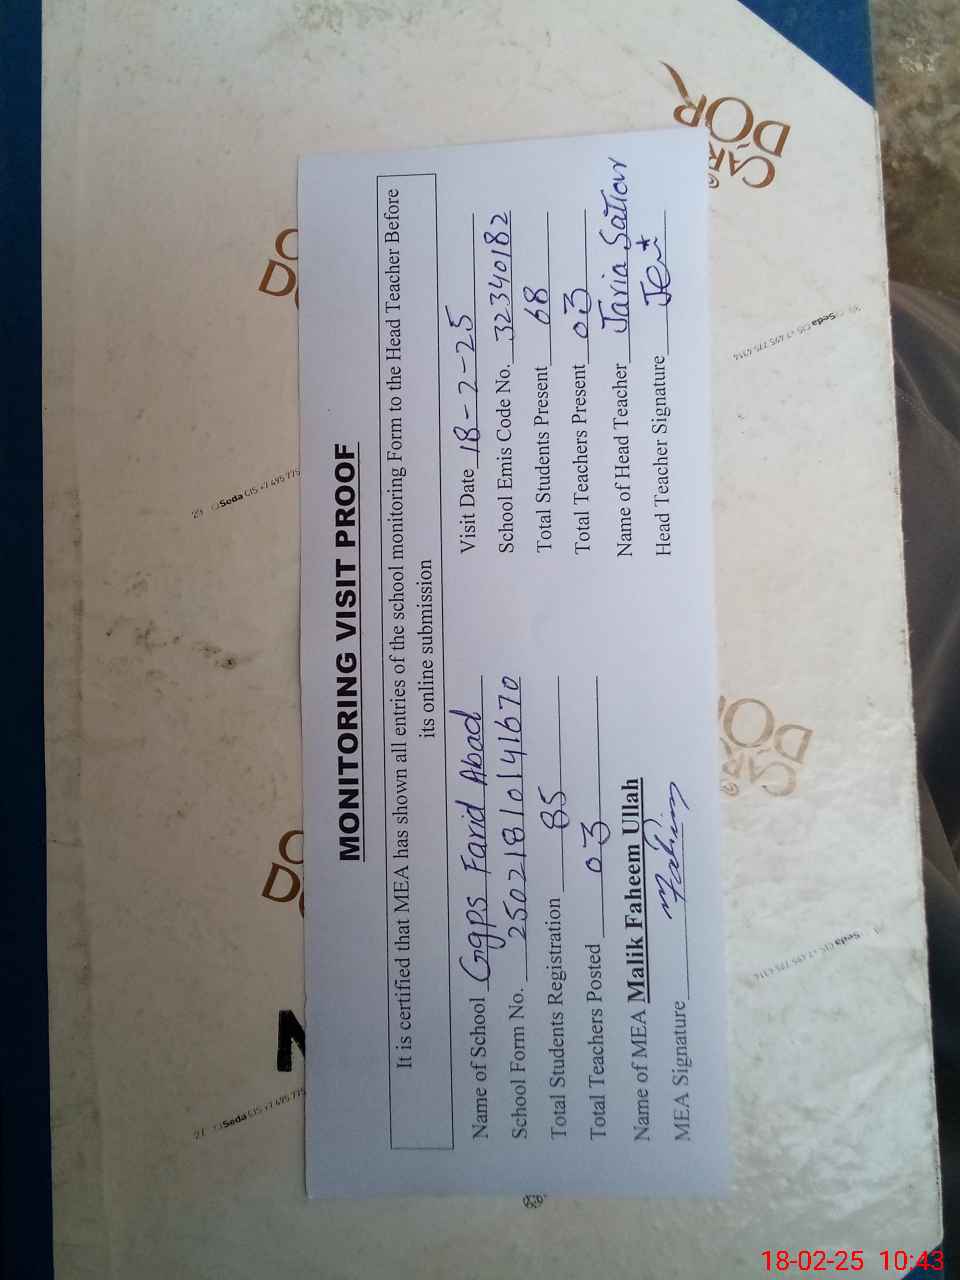 MONITORING VISIT PROOF
It is certified that MEA has shown all entries of the school monitoring Form to the Head Teacher Before
its online submission
Name of School Ggps Farid Abad Visit Date 18-2-25
School Form No. 25021810141670 School Emis Code No. 32340182
Total Students Registration 85 Total Students Present 68
Total Teachers Posted 03 Total Teachers Present 03
Name of MEA Malik Faheem Ullah Name of Head Teacher Javia Sattar
MEA Signature Head Teacher Signature
CAR
DOR
Seda CIS +7 495 775
Seda CIS +7 495 775
Seda CIS +7 495 775 4314
Seda CIS +7 495 775 4314
18-02-25 10:43